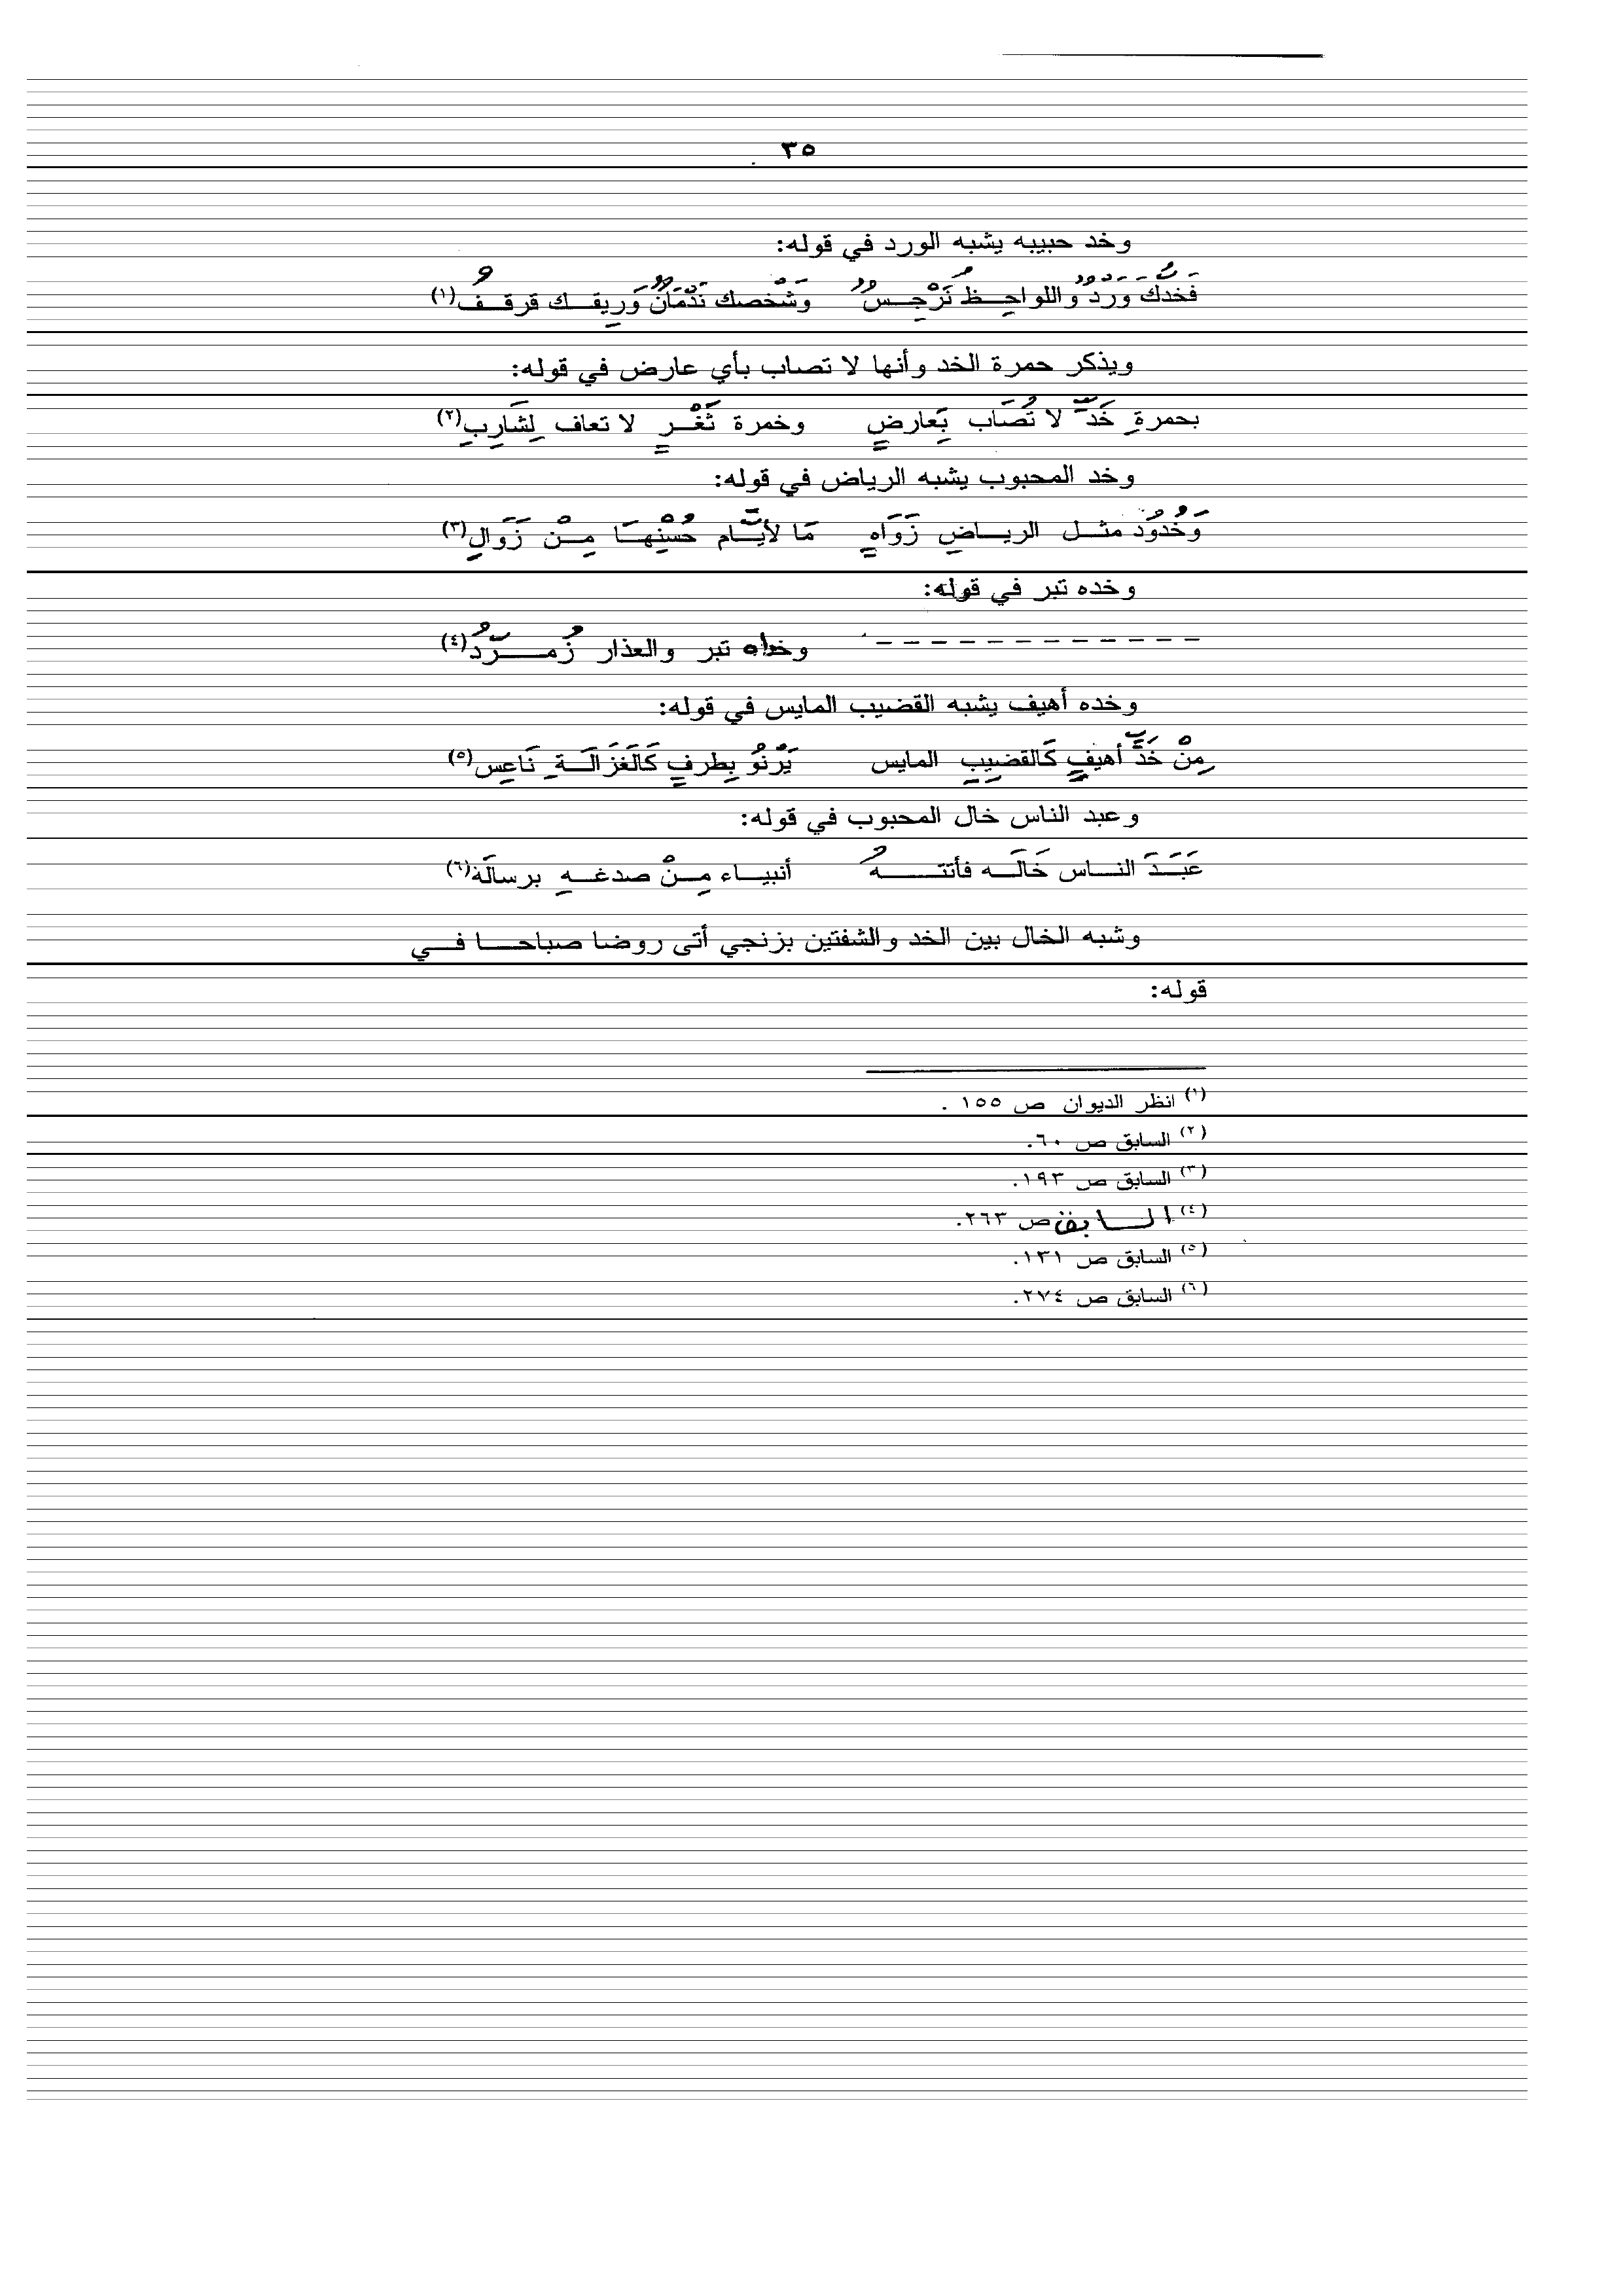 ٣٥
وخد حبيبه يشبه الورد في قوله:
فَخدُكَ وَرَدٌ واللواحِظُ نَرْجِسٌ وَشَخْصك نَدْمَانٌ وَرِيقك قرقفُ(١)
ويذكر حمرة الخد وأنها لا تصاب بأي عارض في قوله:
بحمرةِ خَدٍّ لا تُصَاب بِعارضٍ وخمرة ثَغْرٍ لا تعاف لِشَارِبِ(٢)
وخد المحبوب يشبه الرياض في قوله:
وَخُدُوَد مثل الرياضِ زَوَاهٍ مَا لأيَّام حُسْنِهَا مِنْ زَوَالِ(٣)
وخده تبر في قوله:
– – – – – – – – – – – – وخداه تبر والعذار زُمرَّدُ(٤)
وخده أهيف يشبه القضيب المايس في قوله:
مِنْ خَدِّ أهيفٍ كَالقضِيبِ المايس يَرْنُوُ بِطرفٍ كَالَغَزَالَةِ نَاعِس(٥)
وعبد الناس خال المحبوب في قوله:
عَبَدَ الناس خَالَه فأتتهُ أنبياء مِنْ صدغهِ برسالَة(٦)
وشبه الخال بين الخد والشفتين بزنجي أتى روضا صباحا في
قوله:
(١) انظر الديوان ص ١٥٥ .
(٢) السابق ص ٦٠.
(٣) السابق ص ١٩٣.
(٤) السابق ص ٢٦٣.
(٥) السابق ص ١٣١.
(٦) السابق ص ٢٧٤.